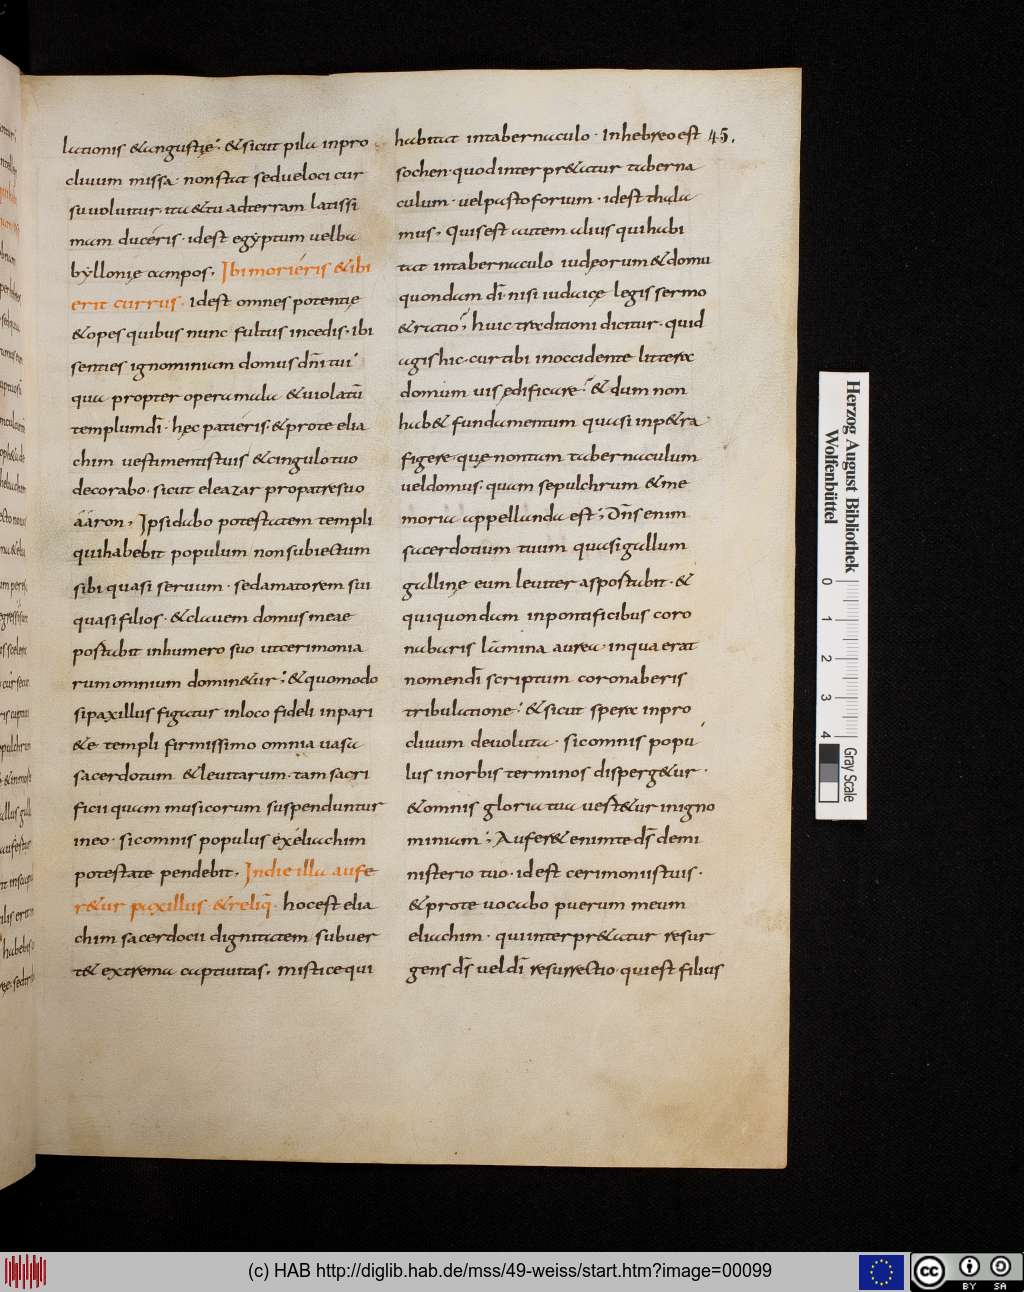 lationis & angustię · & sicut pila in pro
cliuum missa · non stat sed ueloci cur
su uoluitur · ita & tu ad terram latissi
mam duceris · id est egyptum uel ba
byllonię campos, Ibi morieris & ibi
erit currus · id est omnes potentię
& opes quibus nunc fultus incedis · ibi
senties ignominiam domus dn̄i tui
qua propter opera mala & uiolatū
templum dī · hęc patieris · & pro te elia
chim uestimentis tuis & cingulo tuo
decorabo · sicut eleazar pro patre suo
aaron, Ipsi dabo potestatem templi
qui habebit populum non subiectum
sibi quasi seruum · sed amatorem sui
quasi filios · & clauem domus meae
portabit in humero suo ut cerimonia
rum omnium domin&ur · & quomodo
si paxillus figatur in loco fideli in pari
&e templi firmissimo omnia uasa
sacerdotum & leuitarum · tam sacri
ficii quam musicorum suspenduntur
in eo · sic omnis populus ex eliachim
potestate pendebit, In die illa aufe
r&ur paxillus & reliq̄ · hoc est elia
chim sacerdocii dignitatem subuer
t& extrema captiuitas, mistice qui
habitat in tabernaculo · In hebreo est 45.
sochen · quod interpr&atur taberna
culum · uel pastoforium · id est thala
mus, Quis est autem alius qui habi
tat in tabernaculo iudęorum & domu
quondam dī nisi iudaicę legis sermo
& ratio; huic traditioni dicitur · quid
agis hic · cur tibi in occidente litterae
domum uis ędificare · & dum non
hab& fundamentum quasi in p&ra
figere · quę non tam tabernaculum
uel domus · quam sepulchrum & me
moria appellanda est; Dn̄s enim
sacerdotium tuum quasi gallum
gallinę eum leuiter asportabit · &
qui quondam in pontificibus coro
nabaris lāmina aurea · in qua erat
nomen dī scriptum coronaberis
tribulatione · & sicut sperae in pro
cliuum deuoluta · sic omnis popu
lus in orbis terminos disperg&ur ·
& omnis gloria tua uert&ur in igno
miniam; Aufer& enim te ds̄ de mi
nisterio tuo · id est cerimoniis tuis ·
& pro te uocabo puerum meum
eliachim · qui interpr&atur resur
gens ds̄ uel dī resurrectio · qui est filius
Herzog August Bibliothek
Wolfenbüttel
0 1 2 3 4
Gray Scale
(c) HAB http://diglib.hab.de/mss/49-weiss/start.htm?image=00099
cc BY SA